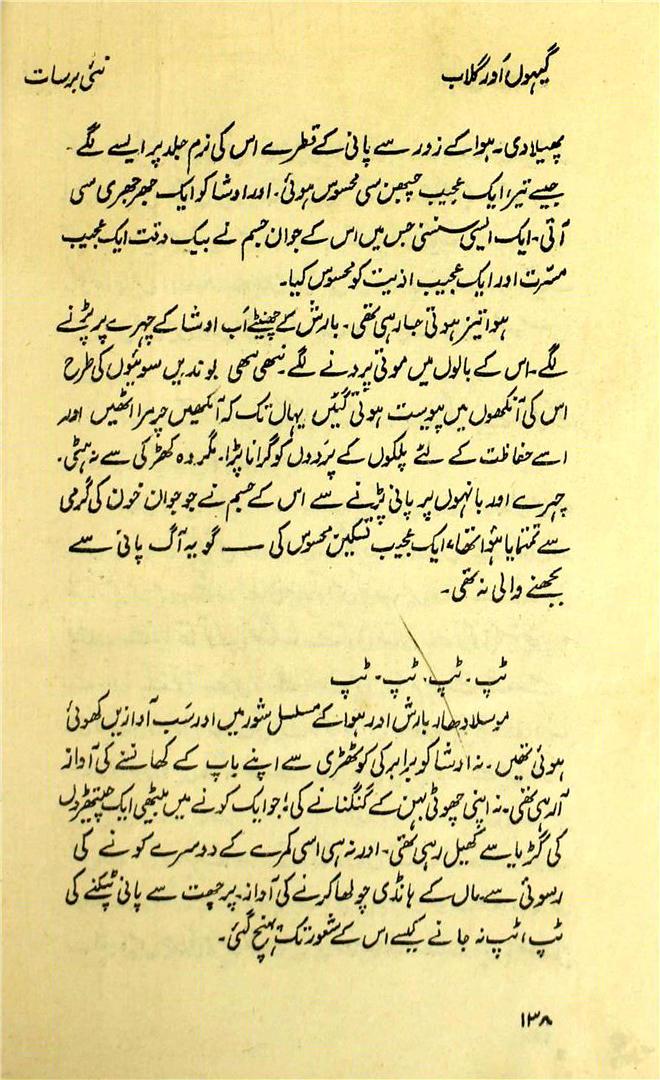 گیہوں اَور گلاب
نئی برسات
پھیلا دی۔ ہوا کے زور سے پانی کے قطرے اس کی نرم جلد پر ایسے لگے
جیسے تیر، ایک عجیب چبھن سی محسوس ہوئی۔ اور اوشا کو ایک جھرجھری سی
آئی۔ ایک ایسی سنسنی جس میں اس کے جوان جسم نے بیک وقت ایک عجیب
مسّرت اور ایک عجیب اذیت کو محسوس کیا۔
ہوا تیز ہوتی جا رہی تھی۔ بارش کے چھینٹے اَب اوشا کے چہرے پر پڑنے
لگے۔ اس کے بالوں میں موتی پرونے لگے۔ ننھی ننھی بوندیں سوئیوں کی طرح
اس کی آنکھوں میں پیوست ہوتی گئیں یہاں تک کہ آنکھیں چرمرا اٹھیں اور
اسے حفاظت کے لئے پلکوں کے پَردوں کو گرانا پڑا۔ مگر وہ کھڑکی سے نہ ہٹی۔
چہرے اور بانہوں پر پانی پڑنے سے اس کے جسم نے جو جوان خون کی گرمی
سے تمتمایا ہُوا تھا، ایک عجیب تسکین محسوس کی — گو یہ آگ پانی سے
بجھنے والی نہ تھی۔
ٹپ۔ ٹپ، ٹپ۔ ٹپ
موسلا دھار بارش اور ہوا کے مسلسل شور میں اور سَب آوازیں کھوئی
ہوئی تھیں۔ نہ اوشا کو برابر کی کوٹھڑی سے اپنے باپ کے کھانسنے کی آواز
آ رہی تھی۔ نہ اپنی چھوٹی بہن کے گنگنانے کی؛ جو ایک کونے میں بیٹھی ایک چیتھڑوں
کی گڑیا سے کھیل رہی تھی۔ اور نہ ہی اسی کمرے کے دوسرے کونے کی
رسوئی سے ماں کے ہانڈی چولھا کرنے کی آواز۔ پر چھت سے پانی ٹپکنے کی
ٹپ، ٹپ نہ جانے کیسے اس کے شعور تک پہنچ گئی۔
۱۳۸